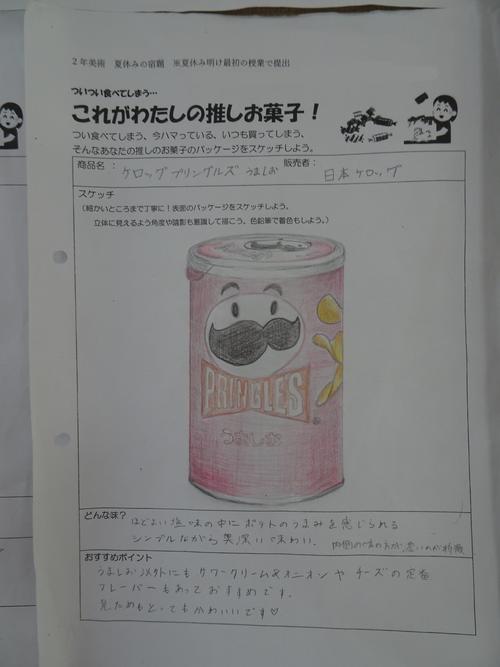 2年美術 夏休みの宿題 ※夏休み明け最初の授業で提出
ついつい食べてしまう…
これがわたしの推しお菓子！
つい食べてしまう、今ハマっている、いつも買ってしまう、
そんなあなたの推しのお菓子のパッケージをスケッチしよう。
商品名： ケロッグ プリングルズ うましお 販売者： 日本ケロッグ
スケッチ
（細かいところまで丁寧に！表面のパッケージをスケッチしよう。
立体に見えるよう角度や陰影も意識して描こう。色鉛筆で着色もしよう。）
PRINGLES
うましお
どんな味？ ほどよい塩味の中にポテトのうまみを感じられる
シンプルながら奥深い味わい。 内側の味の方が濃いのが特徴
おすすめポイント
うましお以外にもサワークリーム&オニオンやチーズの定番
フレーバーもあっておすすめです。
見ためもとってもかわいいです♡